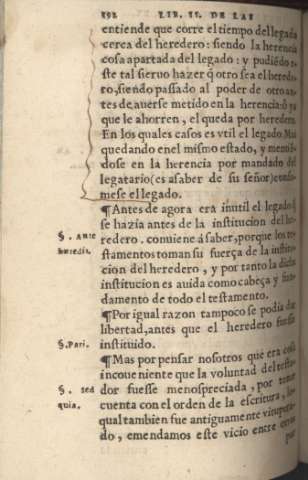 192 LIB. II. DE LAS
entiende que corre el tiempo del legado
cerca del heredero: siendo la herencia
cosa apartada del legado: y pudiẽdo e-
ste tal sieruo hazer q̃ otro sea el herede-
ro, siendo passado al poder de otro an-
tes de auerse metido en la herencia: ò ya
que le ahorren, el queda por heredero.
En los quales casos es vtil el legado. Mas
quedando en el mismo estado, y metiẽ-
dose en la herencia por mandado del
legatario (es a saber de su señor) consu-
mese el legado.
¶Antes de agora era inutil el legado q̃
se hazia antes de la institucion del he-
§. Ante
redero. conuiene à saber, porque los te-
hæredis.
stamentos toman su fuerça de la institu-
cion del heredero, y por tanto la dicha
institucion es auida como cabeça y fun-
damento de todo el testamento.
¶Por igual razon tampoco se podia dar
libertad, antes que el heredero fuesse
§. Pari.
instituido.
¶Mas por pensar nosotros que era cosa
incoueniente que la voluntad del testa-
§. sed
dor fuesse menospreciada, por tomar
quia.
cuenta con el orden de la escritura, lo
qual tambien fue antiguamente vitupera-
do, emendamos este vicio entre otros
por